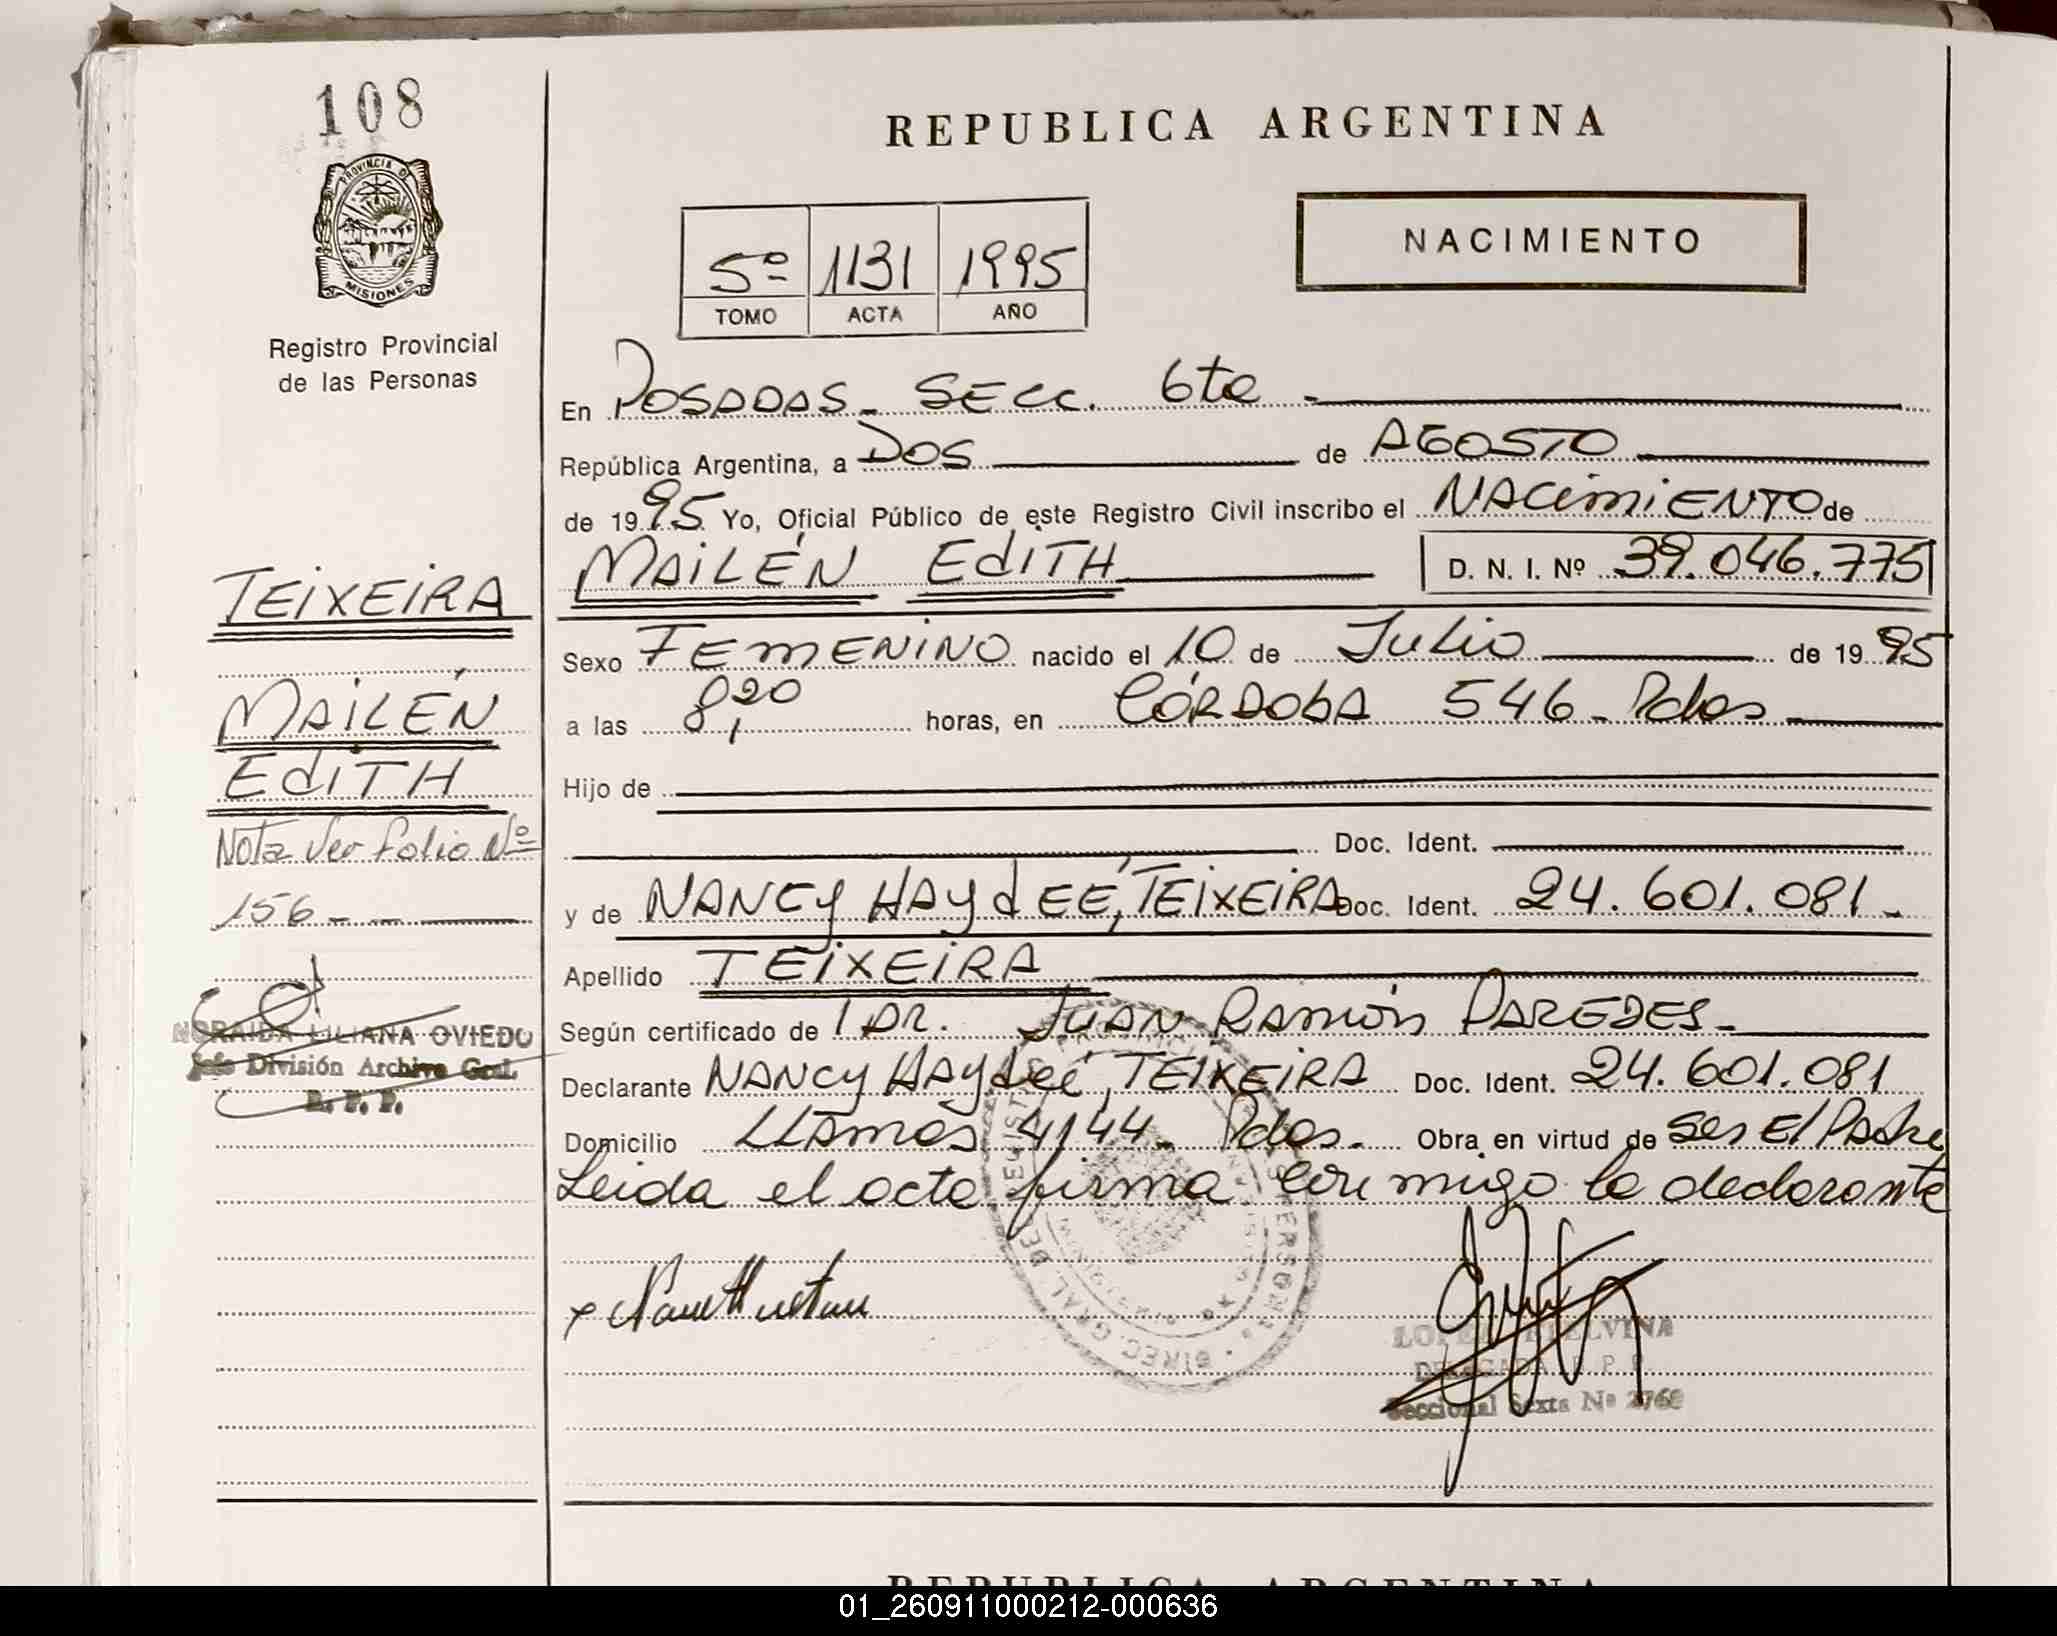 108
PROVINCIA DE
MISIONES
Registro Provincial
de las Personas
REPUBLICA ARGENTINA
NACIMIENTO
5º 1131 1995
TOMO ACTA AÑO
En POSADAS - SECC. 6ta -
República Argentina, a DOS de AGOSTO
de 1995 Yo, Oficial Público de este Registro Civil inscribo el NACIMIENTO de
MAILÉN EDITH D. N. I. Nº 39.046.775
Sexo FEMENINO nacido el 10 de Julio de 1995
a las 8,20 horas, en CÓRDOBA 546 - Pdas
Hijo de
Doc. Ident.
y de NANCY HAYDEÉ, TEIXEIRA Doc. Ident. 24.601.081 -
Apellido TEIXEIRA
Según certificado de 1 DR. JUAN RAMÓN PAREDES -
Declarante NANCY HAYDEÉ, TEIXEIRA Doc. Ident. 24.601.081
Domicilio LLAMAS 4144 - Pdas. Obra en virtud de
Leida el acta firma conmigo la declarante
TEIXEIRA
MAILÉN
EDITH
Nota Ver folio Nº
156 - -
NORAIDA LILIANA OVIEDO
Jefe División Archivo Gral.
R. P. P.
DELEGADA R. P. P.
Seccional Sexta Nº
REPUBLICA ARGENTINA
01_260911000212-000636